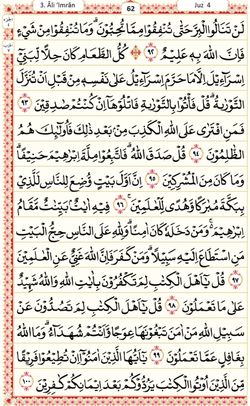 3. Āli 'Imrân 62 Juz 4
لَنْ تَنَالُوا الْبِرَّ حَتّٰى تُنْفِقُوْا مِمَّا تُحِبُّوْنَ ۗ وَمَا تُنْفِقُوْا مِنْ شَيْءٍ
فَاِنَّ اللّٰهَ بِهٖ عَلِيْمٌ ٩٢ كُلُّ الطَّعَامِ كَانَ حِلًّا لِّبَنِيْٓ
اِسْرَآءِيْلَ اِلَّا مَا حَرَّمَ اِسْرَآءِيْلُ عَلٰى نَفْسِهٖ مِنْ قَبْلِ اَنْ تُنَزَّلَ
التَّوْرٰىةُ ۗ قُلْ فَأْتُوْا بِالتَّوْرٰىةِ فَاتْلُوْهَآ اِنْ كُنْتُمْ صٰدِقِيْنَ ٩٣
فَمَنِ افْتَرٰى عَلَى اللّٰهِ الْكَذِبَ مِنْ بَعْدِ ذٰلِكَ فَاُولٰٓئِكَ هُمُ
الظّٰلِمُوْنَ ٩٤ قُلْ صَدَقَ اللّٰهُ ۗ فَاتَّبِعُوْا مِلَّةَ اِبْرٰهِيْمَ حَنِيْفًا ۗ
وَمَا كَانَ مِنَ الْمُشْرِكِيْنَ ٩٥ اِنَّ اَوَّلَ بَيْتٍ وُّضِعَ لِلنَّاسِ لَلَّذِيْ
بِبَكَّةَ مُبٰرَكًا وَّهُدًى لِّلْعٰلَمِيْنَ ٩٦ فِيْهِ اٰيٰتٌۢ بَيِّنٰتٌ مَّقَامُ
اِبْرٰهِيْمَ ۚ وَمَنْ دَخَلَهٗ كَانَ اٰمِنًا ۗ وَلِلّٰهِ عَلَى النَّاسِ حِجُّ الْبَيْتِ
مَنِ اسْتَطَاعَ اِلَيْهِ سَبِيْلًا ۗ وَمَنْ كَفَرَ فَاِنَّ اللّٰهَ غَنِيٌّ عَنِ الْعٰلَمِيْنَ
٩٧ قُلْ يٰٓاَهْلَ الْكِتٰبِ لِمَ تَكْفُرُوْنَ بِاٰيٰتِ اللّٰهِ ۖ وَاللّٰهُ شَهِيْدٌ
عَلٰى مَا تَعْمَلُوْنَ ٩٨ قُلْ يٰٓاَهْلَ الْكِتٰبِ لِمَ تَصُدُّوْنَ عَنْ
سَبِيْلِ اللّٰهِ مَنْ اٰمَنَ تَبْغُوْنَهَا عِوَجًا وَّاَنْتُمْ شُهَدَآءُ ۗ وَمَا اللّٰهُ
بِغَافِلٍ عَمَّا تَعْمَلُوْنَ ٩٩ يٰٓاَيُّهَا الَّذِيْنَ اٰمَنُوْٓا اِنْ تُطِيْعُوْا فَرِيْقًا
مِّنَ الَّذِيْنَ اُوْتُوا الْكِتٰبَ يَرُدُّوْكُمْ بَعْدَ اِيْمَانِكُمْ كٰفِرِيْنَ ١٠٠